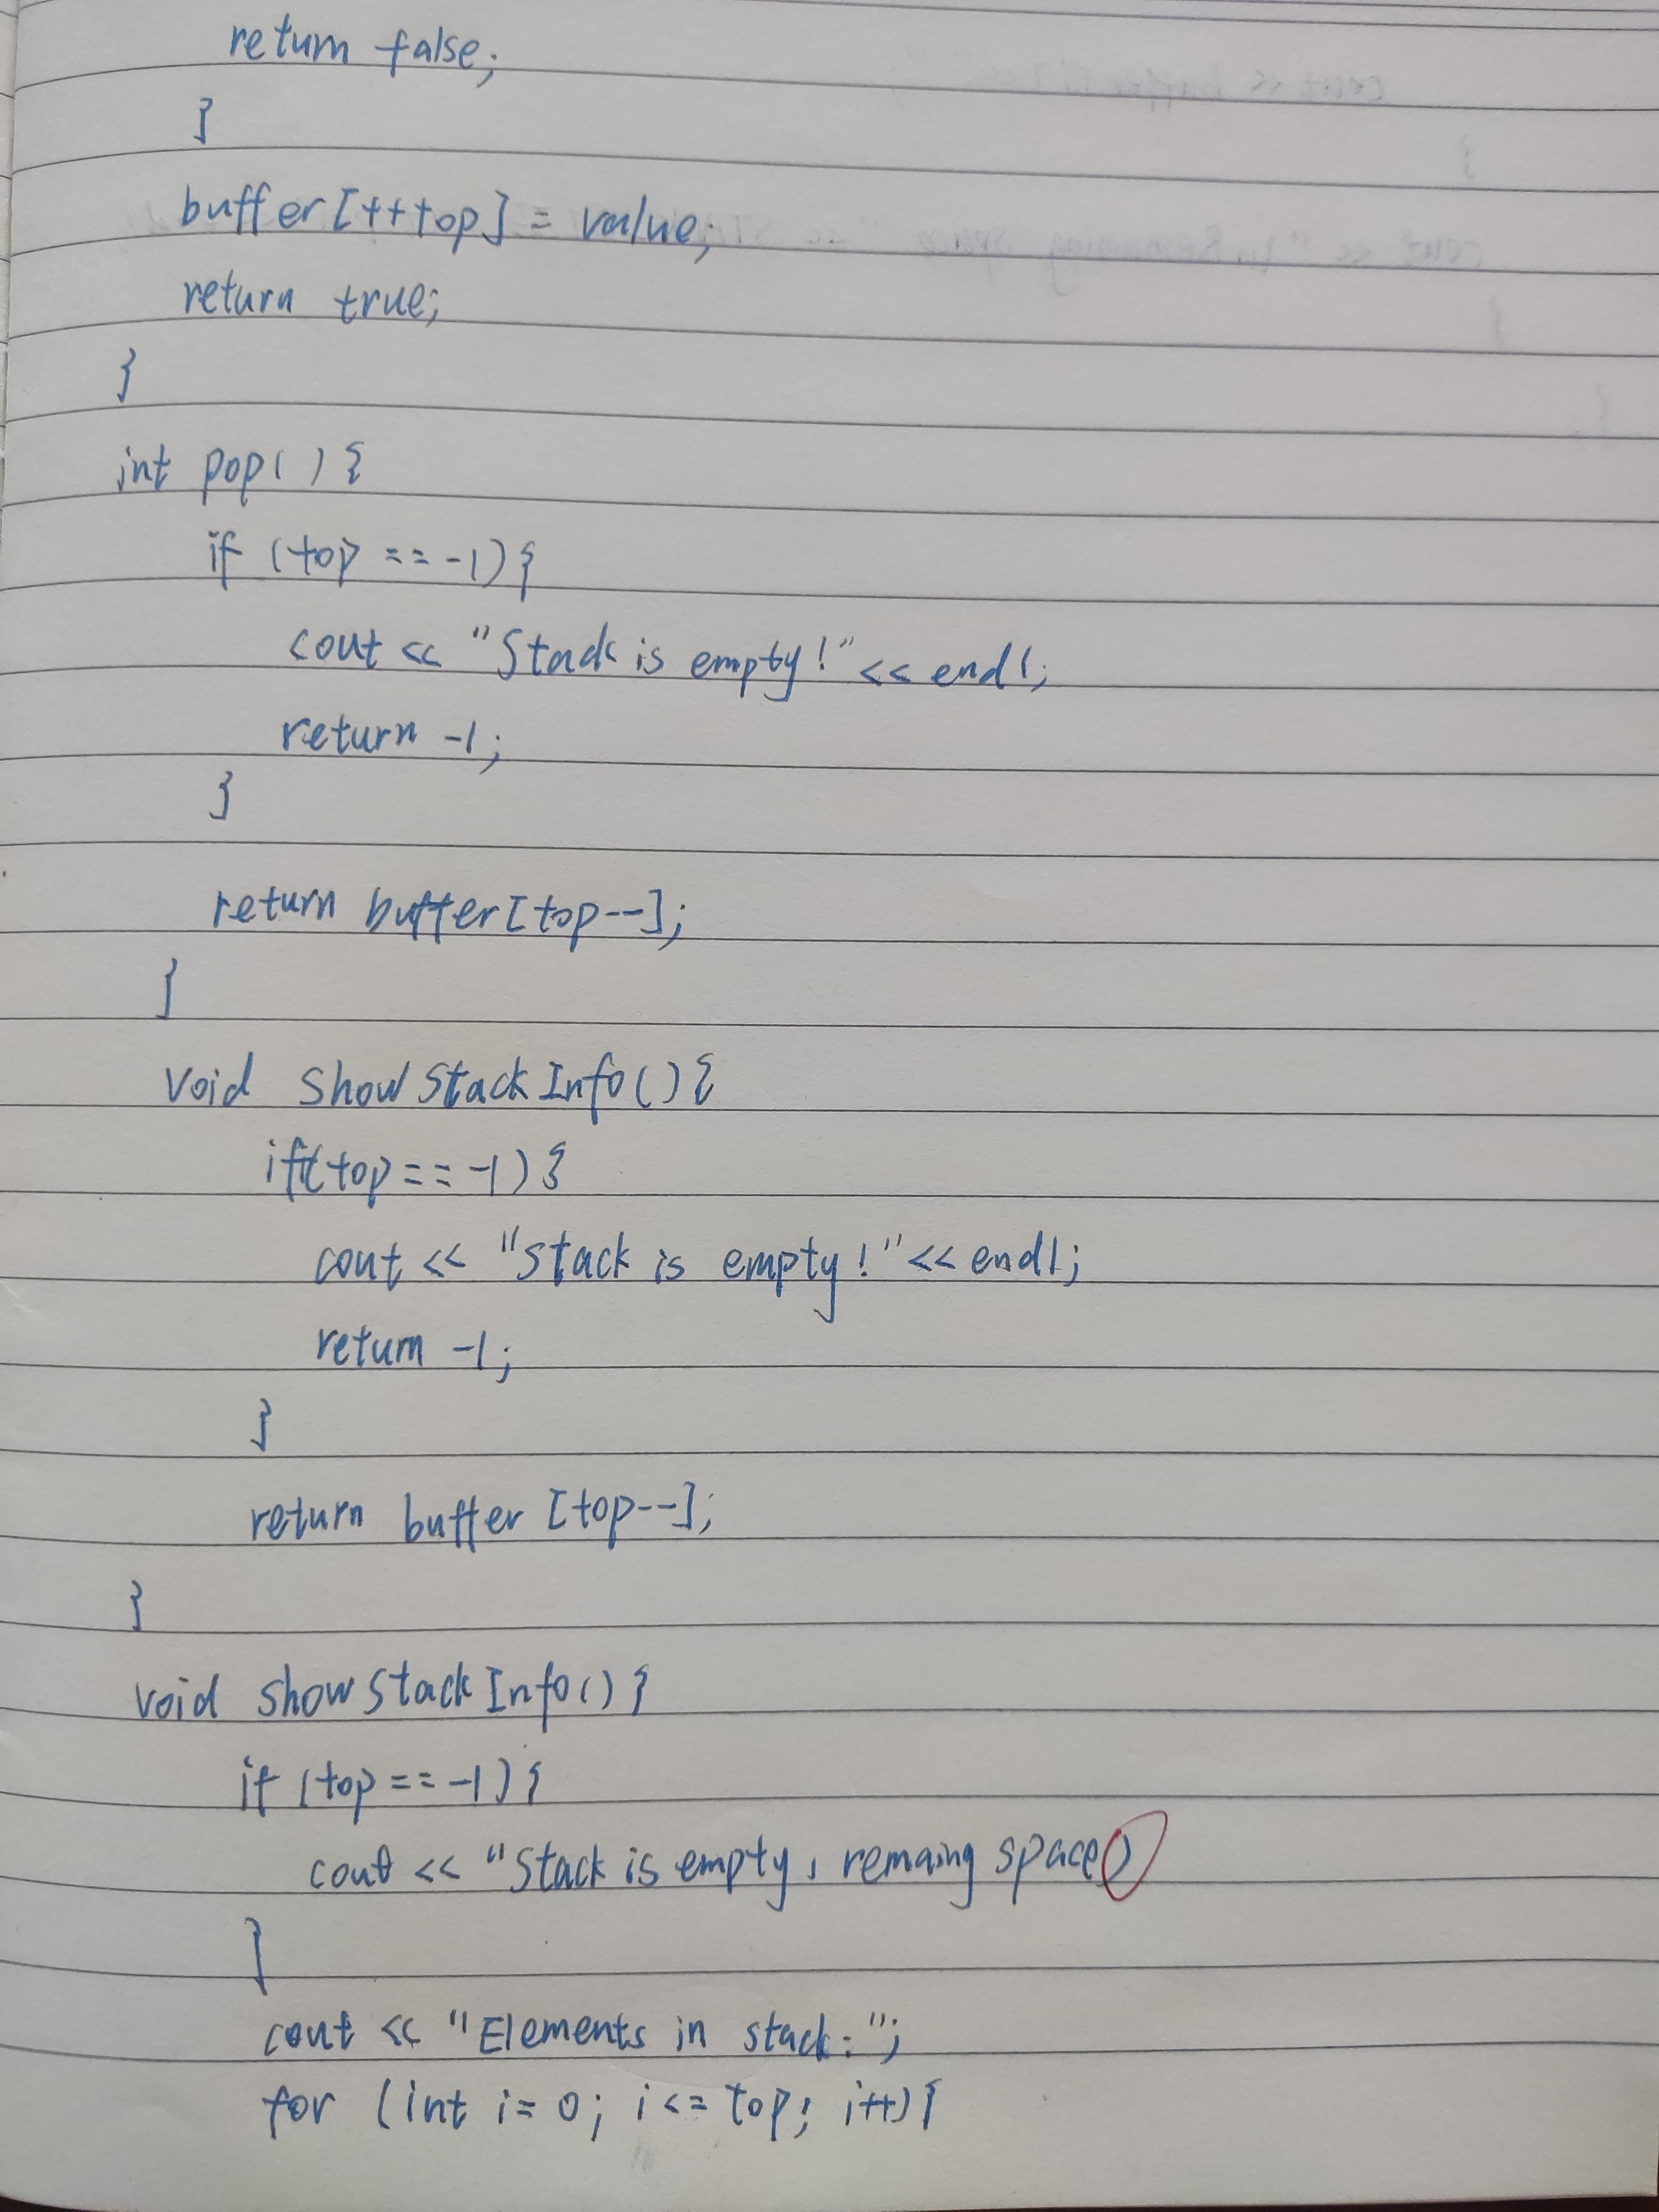 return false;
}
buffer[++top] = value;
return true;
}
int pop() {
if (top == -1) {
cout << "Stack is empty!" << endl;
return -1;
}
return buffer[top--];
}
void showStackInfo() {
if(top == -1) {
cout << "Stack is empty!" << endl;
return -1;
}
return buffer [top--];
}
void showStackInfo() {
if (top == -1) {
cout << "Stack is empty, remaing space()
}
cout << "Elements in stack: ";
for (int i = 0; i <= top; i++) {